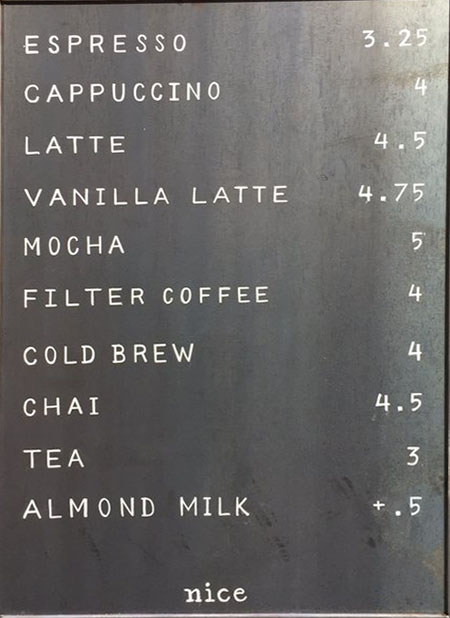 ESPRESSO 3.25
CAPPUCCINO 4
LATTE 4.5
VANILLA LATTE 4.75
MOCHA 5
FILTER COFFEE 4
COLD BREW 4
CHAI 4.5
TEA 3
ALMOND MILK +.5
nice